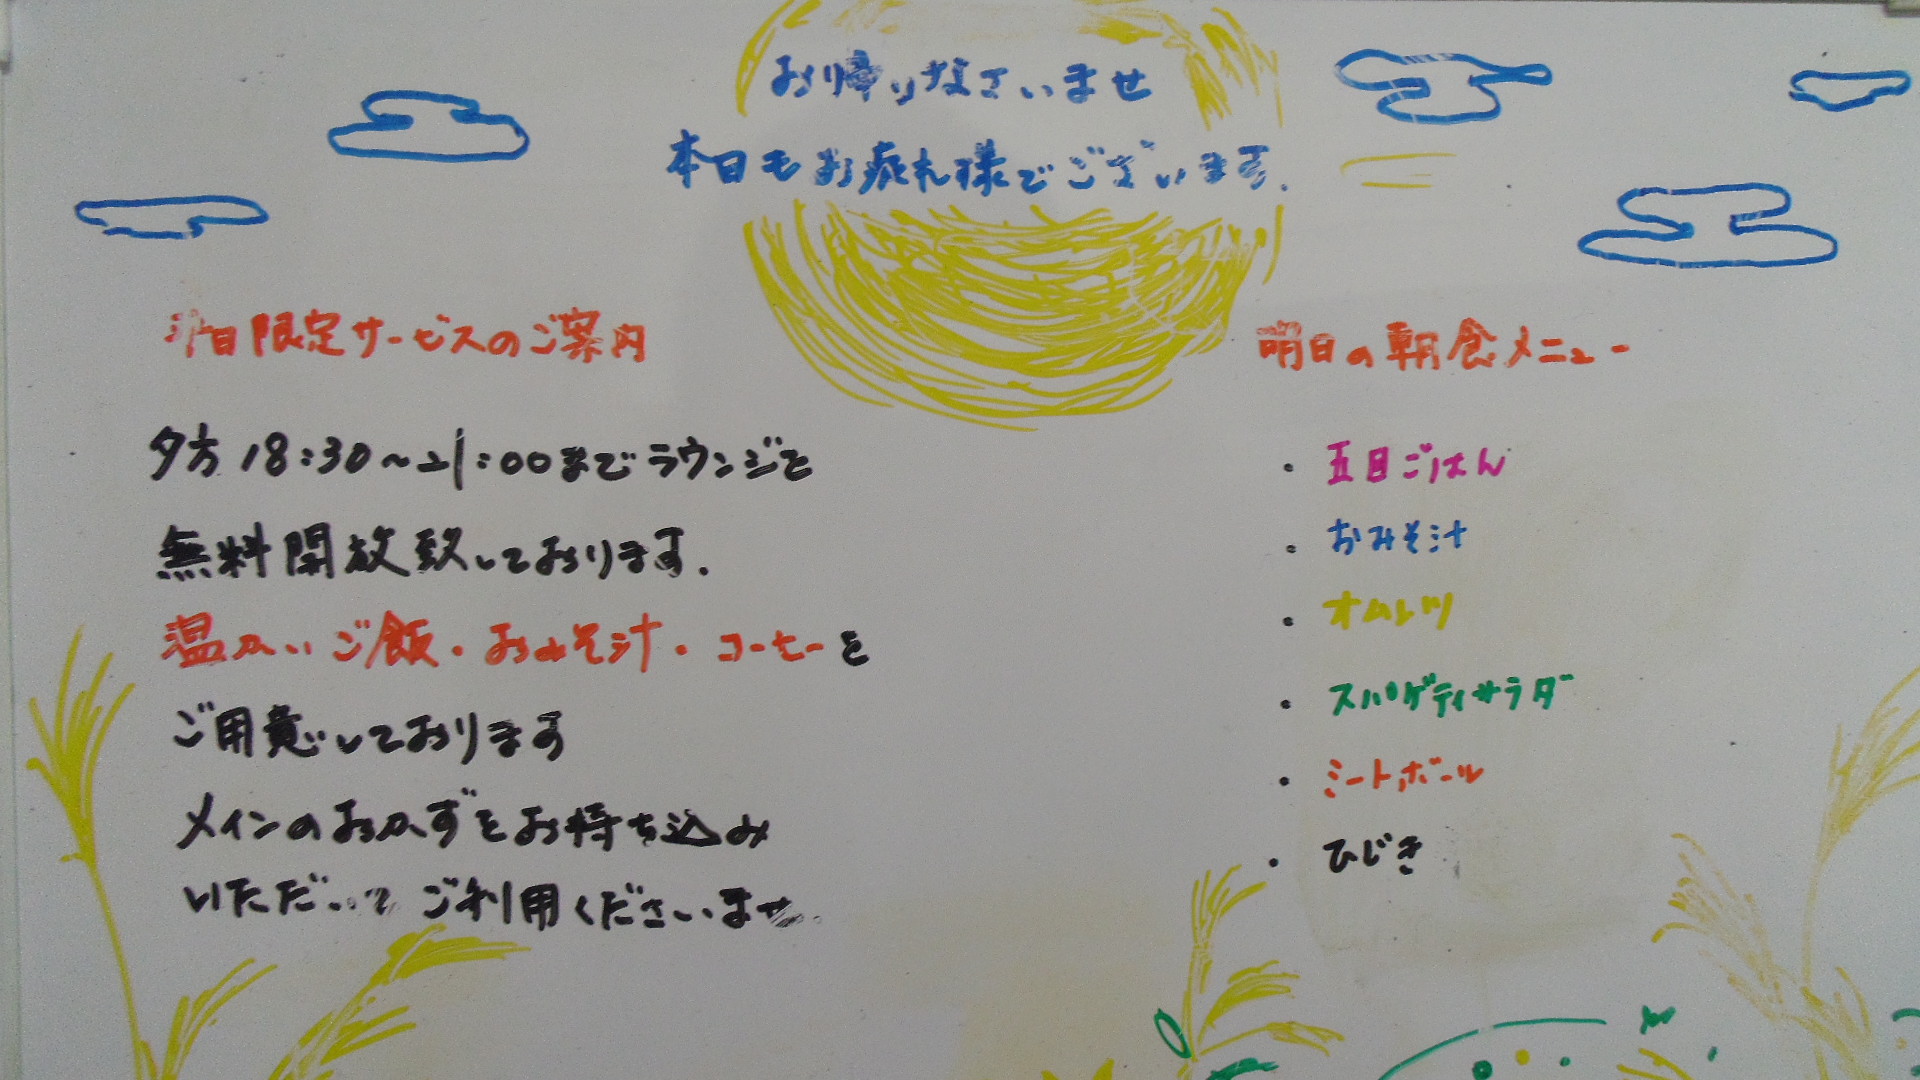 お帰りなさいませ
本日もお疲れ様でございます.
日限定サービスのご案内
夕方18:30~21:00までラウンジを
無料開放致しております.
温かいご飯・おみそ汁・コーヒーを
ご用意しております
メインのおかずをお持ち込み
いただいてご利用くださいませ.
明日の朝食メニュー
・五目ごはん
・おみそ汁
・オムレツ
・スパゲティサラダ
・ミートボール
・ひじき